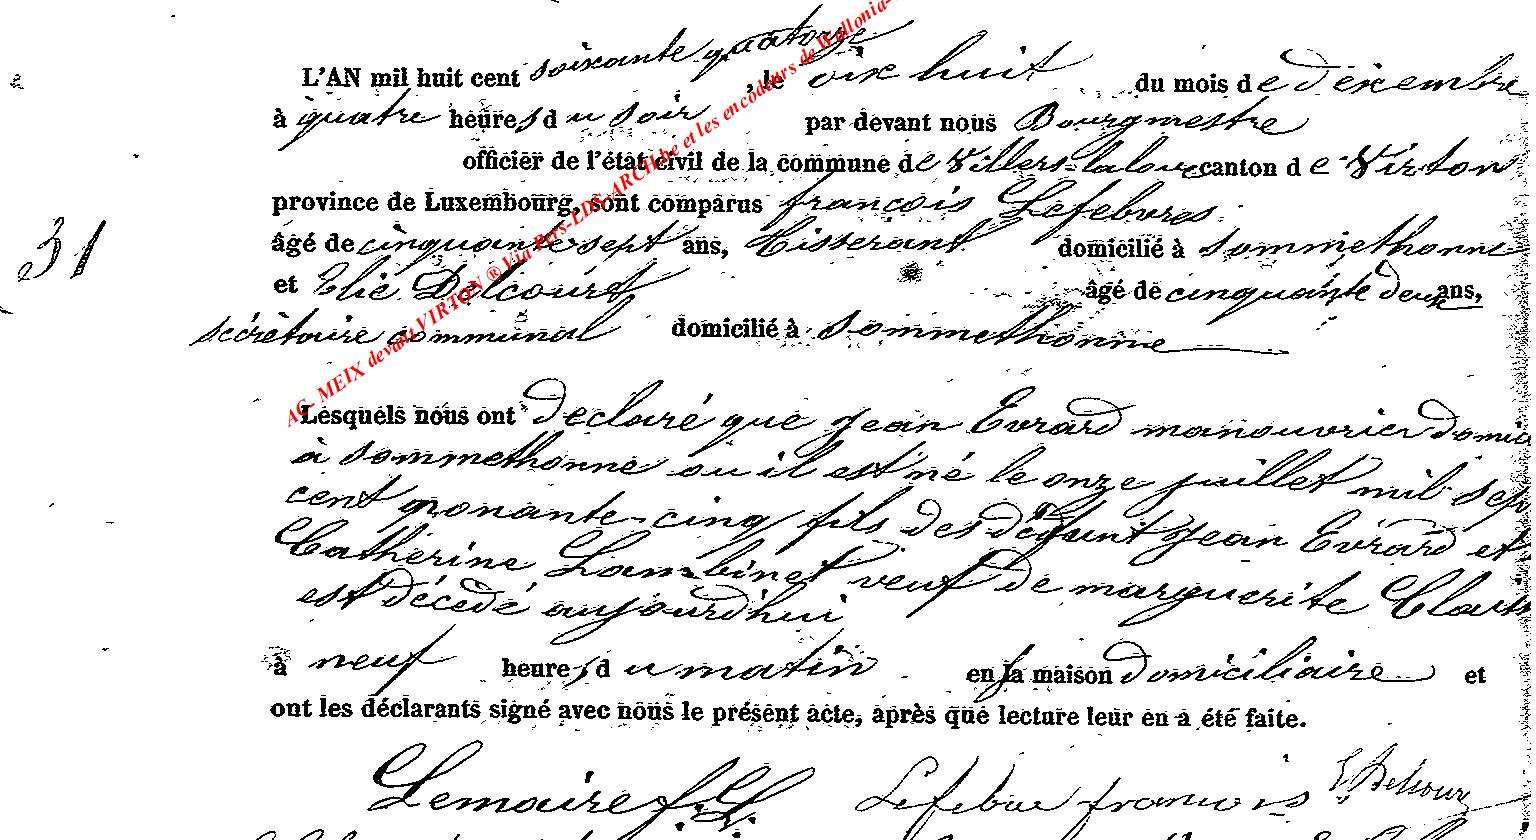 L'AN mil huit cent soixante quatorze, le dix huit du mois de décembre
à quatre heures du soir par devant nous Bourgmestre
officier de l'état civil de la commune de Villers-la-loue canton de Virton
province de Luxembourg, sont comparus françois Lefebvres
31
âgé de cinquante sept ans, tisserant domicilié à sommethonne
et Elié Delcourt âgé de cinquante deux ans,
sécrétaire communal domicilié à sommethonne
Lesquels nous ont declaré que Jean Evrard manouvrier domici
à sommethonne ou il est né le onze juillet mil sep
cent nonante-cinq fils des défunt Jean Evrard et
Catherine Lambinet veuf de marguerite
est décédé aujourd'hui
à neuf heures du matin en sa maison domiciliaire et
ont les déclarants signé avec nous le présent acte, après que lecture leur en a été faite.
Lemaire f. L. Lefebve francois E Delcour
AG- MEIX devant VIRTON ® Via Pers-LDS-ARCH.be et les encodeurs de Wallonia-